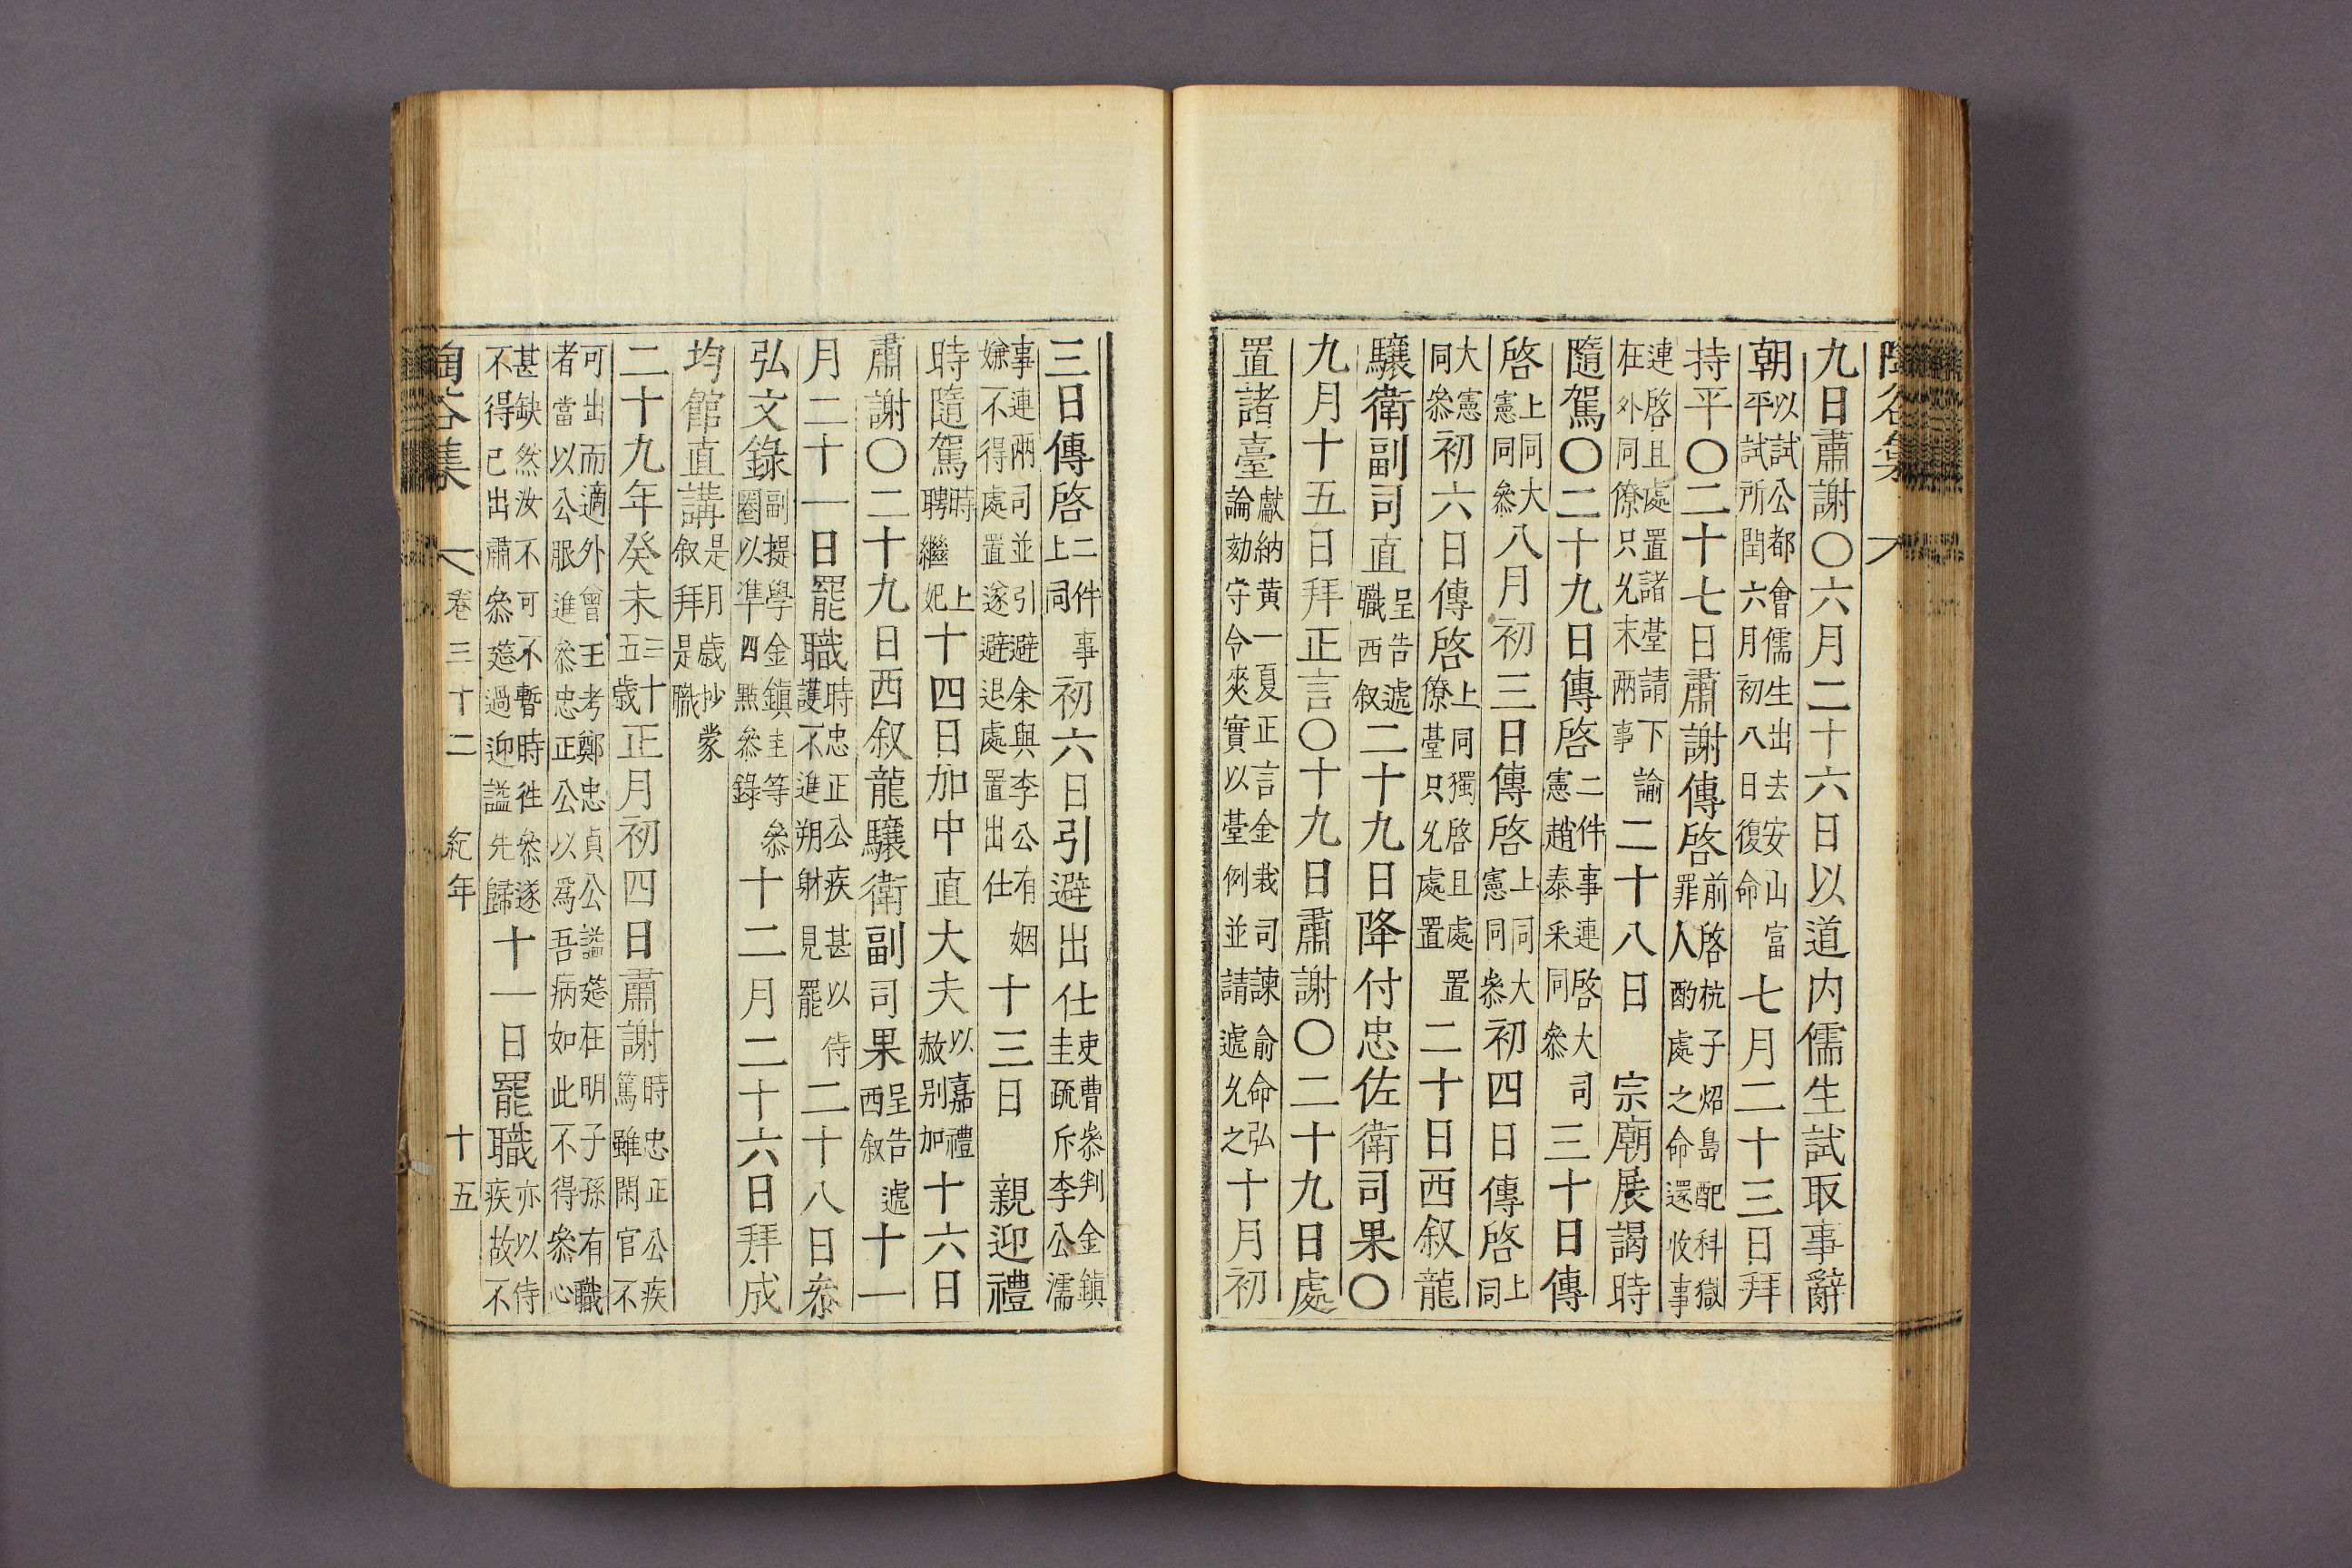 陶谷集
九日肅謝○六月二十六日以道內儒生試取事辭
朝以試公都會儒生出去安山富平試所閏六月初八日復命七月二十三日拜
持平○二十七日肅謝傳啓前啓杭子炤島配科獄罪人酌處之命還收事
連啓且處置諸臺請下諭在外同僚只允末兩事二十八日 宗廟展謁時
隨駕○二十九日傳啓二件事連啓大司憲趙泰采同叅三十日傳
啓上同大憲同叅八月初三日傳啓上同大憲同叅初四日傳啓上同
大憲同叅初六日傳啓上同獨啓且處置僚臺只允處置二十日西叙龍
驤衛副司直呈告遞職西叙二十九日降付忠佐衛司果○
九月十五日拜正言○十九日肅謝○二十九日處
置諸臺獻納黃一夏正言金栽司諫俞命弘論劾守令爽實以臺例並請遞允之十月初
三日傳啓二件事上同初六日引避出仕吏曹叅判金鎭圭疏斥李公濡
事連兩司並引避余與李公有姻嫌不得處置遂避退處置出仕十三日 親迎禮
時隨駕時上聘繼妃十四日加中直大夫以嘉禮赦別加十六日
肅謝○二十九日西叙龍驤衛副司果呈告遞西叙十一
月二十一日罷職時忠正公疾甚以侍護不進朔射見罷二十八日叅
弘文錄副提學金鎭圭等叅圈以準四點叅錄十二月二十六日拜成
均館直講是月歲抄蒙叙拜是職
二十九年癸未三十五歲正月初四日肅謝時忠正公疾篤雖閑官不
可出而適外曾王考鄭忠貞公謚筵在明子孫有職者當以公服進叅忠正公以爲吾病如此不得叅心
甚缺然汝不可不暫時徃叅遂不得已出肅叅筵過迎謚先歸十一日罷職亦以侍疾故不
陶谷集 卷三十二 紀年 十五